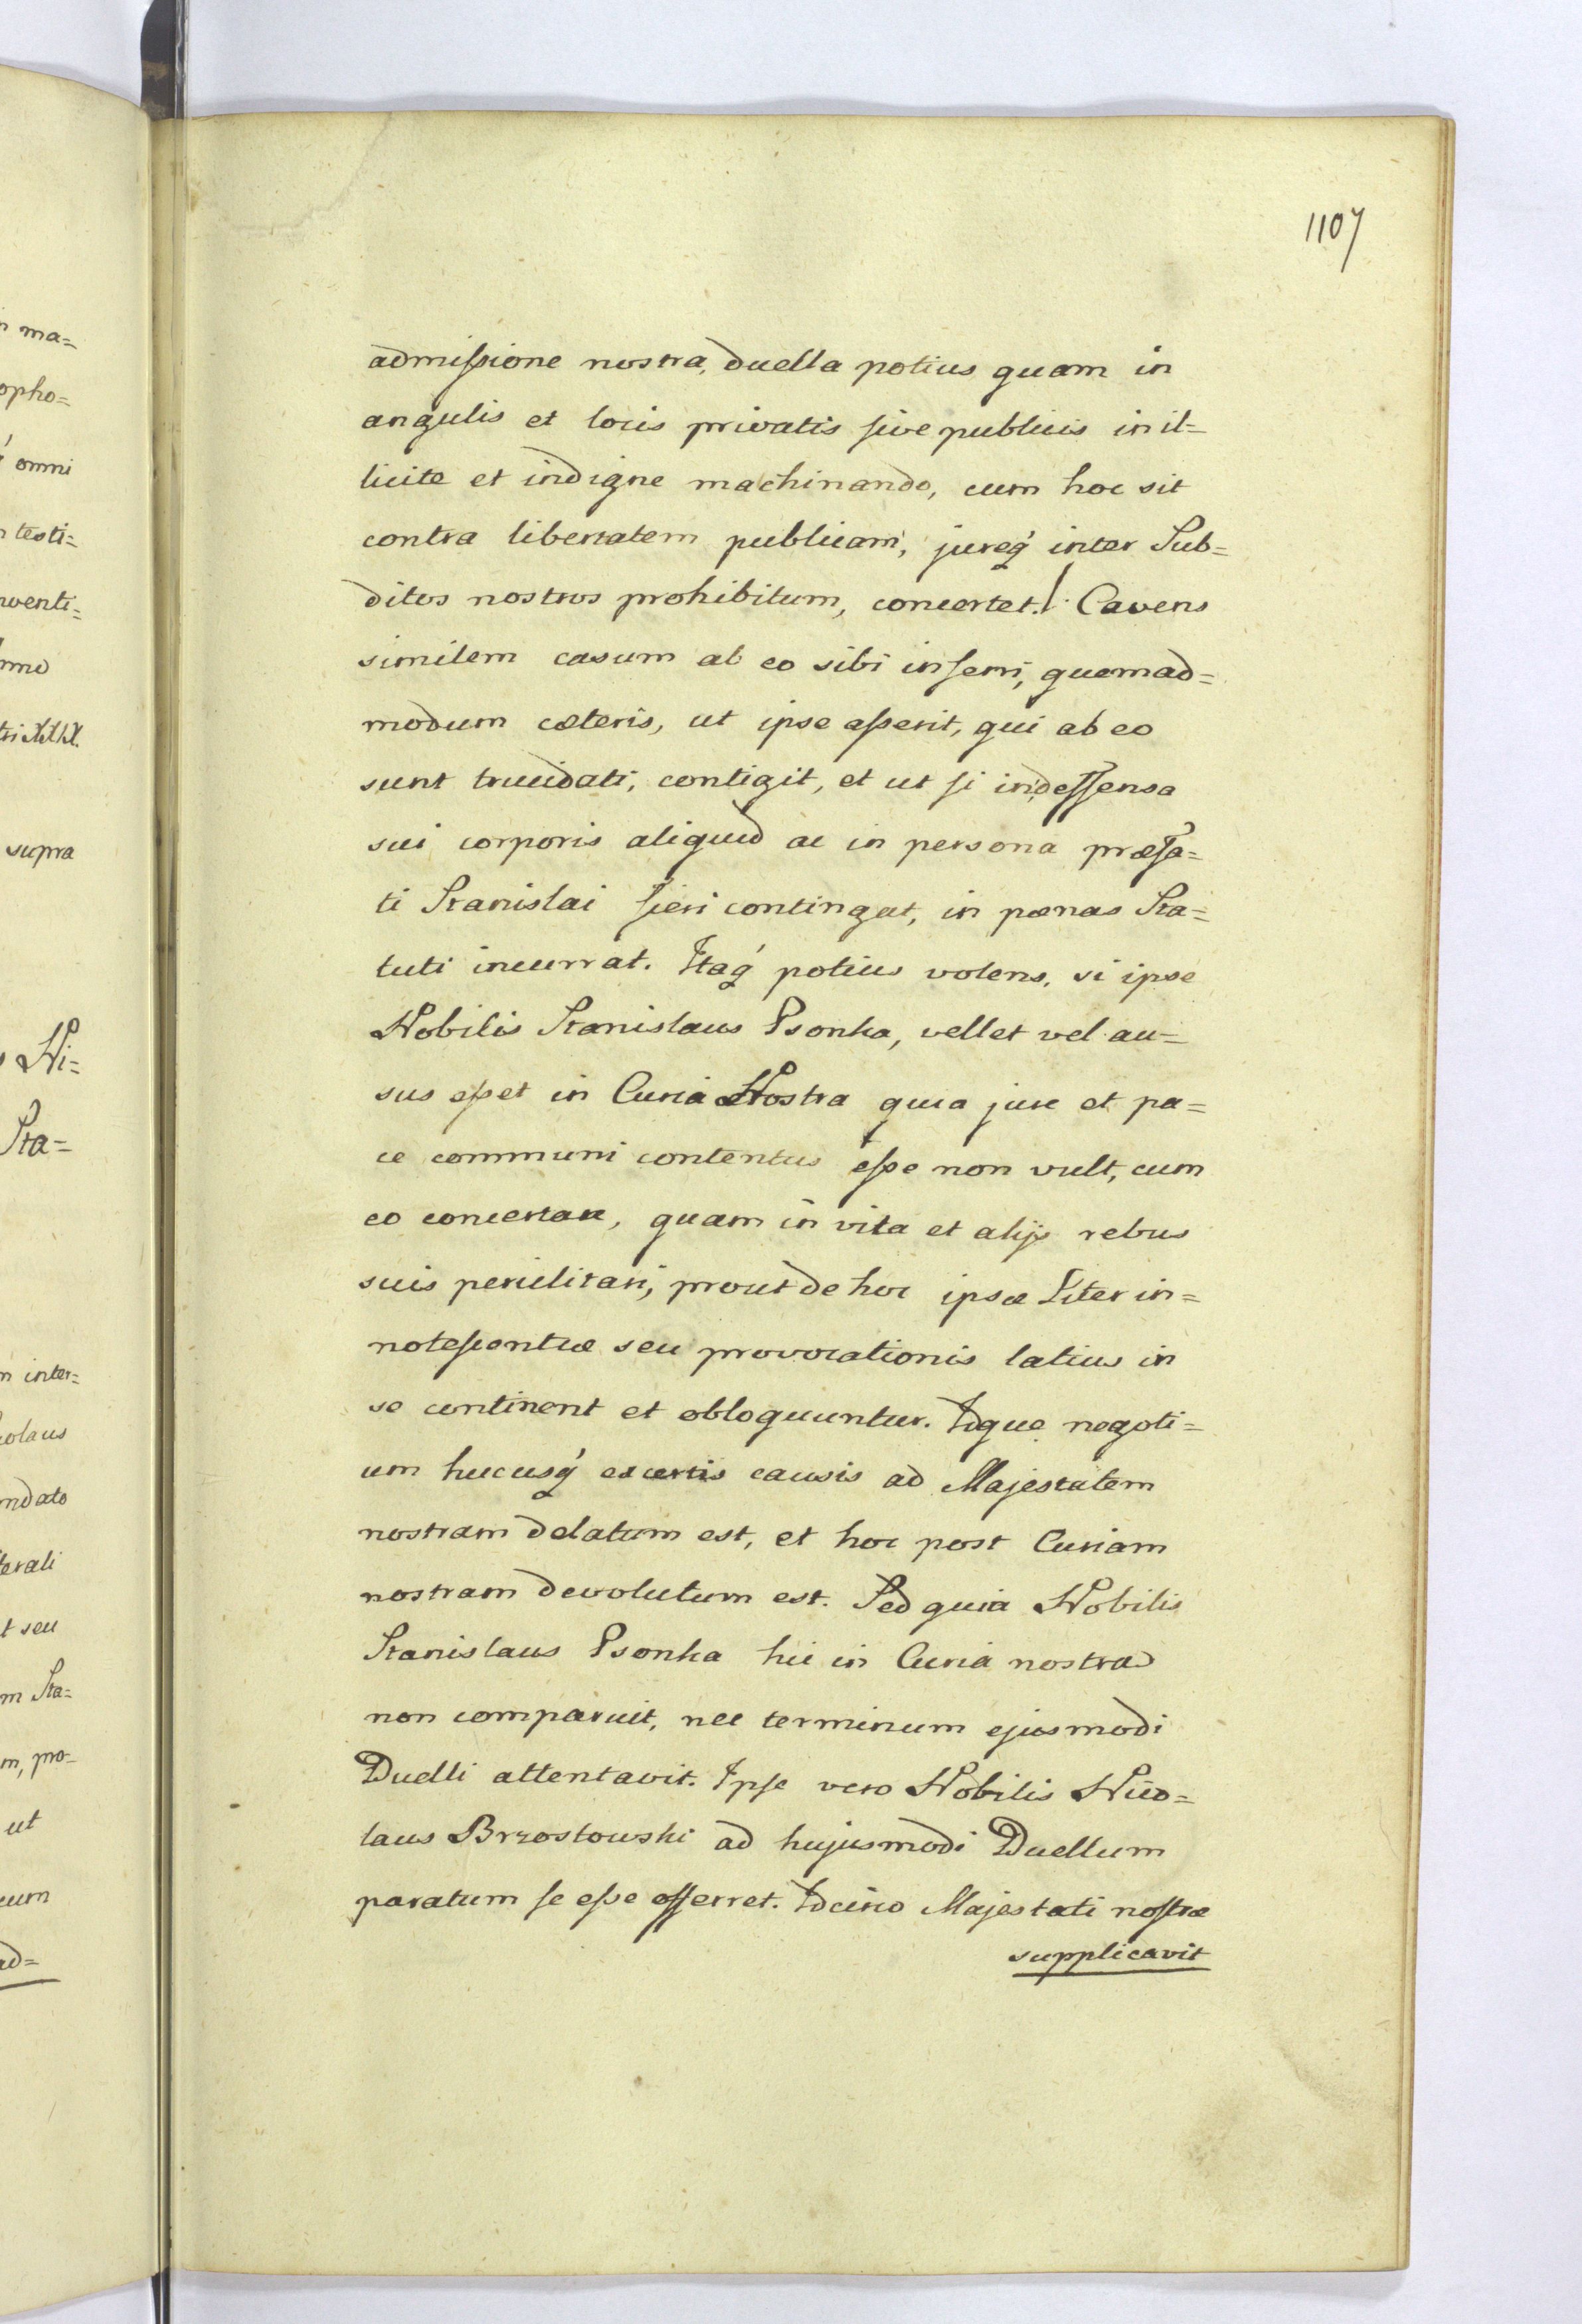 1107
admissione nostra, duella potius quam in
angulis et locis privatis sive publicis in il=
licite et indigne machinando, cum hoc sit
contra libertatem publicam, jureq́ inter Sub=
ditos nostros prohibitum, concertet. Cavens
similem casum ab eo sibi inferri, quemad=
modum cæteris, ut ipse asserit, qui ab eo
sunt trucidati, contigit, et ut si indeffensa
sui corporis aliquid ac in persona præfa=
ti Stanislai fieri contingat, in pœnas Sta=
tuti incurrat. Itaq́ potius volens, si ipse
Nobilis Stanislaus Psonka, vellet vel au=
sus esset in Curia Nostra quia jure et pa=
ce communi contentus esse non vult, cum
eo concertare, quam in vita et alijs rebus
suis periclitari, prout de hoc ipsæ Liter in=
notescentiæ seu provocationis latius in
se continent et obloquuntur. Idque negoti=
um hucusq́ excertis causis ad Majestatem
nostram delatum est, et hoc post Curiam
nostram devolutum est. Sed quia Nobilis
Stanislaus Psonka hic in Curia nostra
non comparuit, nec terminum ejusmodi
Duelli attentavit. Ipse vero Nobilis Nico=
laus Brzostowski ad hujusmodi Duellum
paratum se esse offerret. Idcirco Majestati nostræ
supplicavit
n ma=
opho=
omni
testi=
nventi=
supra
Ni=
Sta=
m inter=
colaus
ndato
terali
t seu
m Sta=
m, pro=
ut
cum
ad=